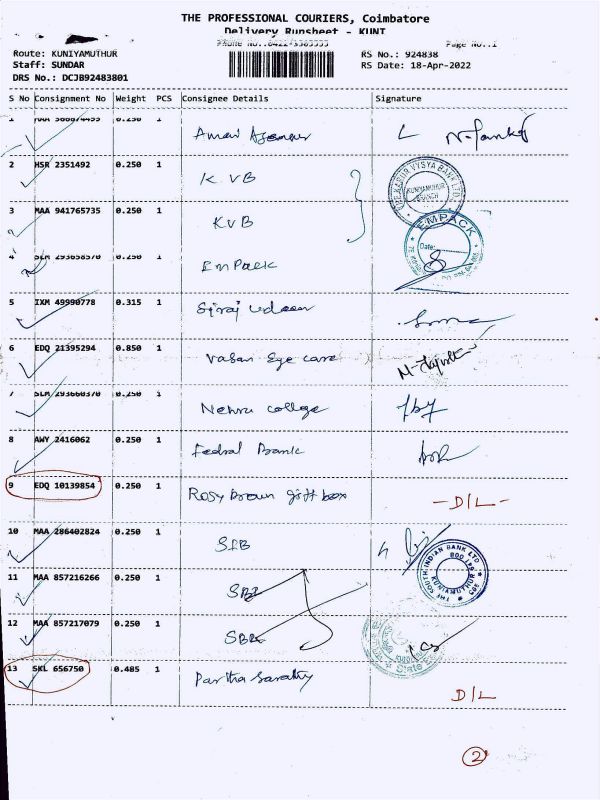 THE PROFESSIONAL COURIERS, Coimbatore
Delivery Runsheet - KUNI
Page No.:1
Route: KUNIYAMUTHUR RS No.: 924838
Staff: SUNDAR RS Date: 18-Apr-2022
DRS No.: DCJB92483801
S No Consignment No Weight PCS Consignee Details Signature
1 MAA 0.250 1
2 HSR 2351492 0.250 1 KVB
THE KARUR VYSYA BANK LTD. KUNIYAMUTHUR BRANCH
3 MAA 941765735 0.250 1 KVB
4 SLM 293658570 0.250 1 EmPack
EMPACK Date:
5 IXM 49990778 0.315 1 Siraj
6 EDQ 21395294 0.850 1 Vasan Eye care
7 SLM 293660370 0.250 1 Nehru college
8 AWY 2416062 0.250 1 Fedral Bank
9 EDQ 10139854 0.250 1 Rosy brown gift box -D/L-
10 MAA 286402824 0.250 1 SIB
THE SOUTH INDIAN BANK LTD KUNIAMUTHUR CBE
11 MAA 857216266 0.250 1 SBI
12 MAA 857217079 0.250 1 SBI
State
13 SKL 656750 0.485 1 Partha Sarathy D/L
2